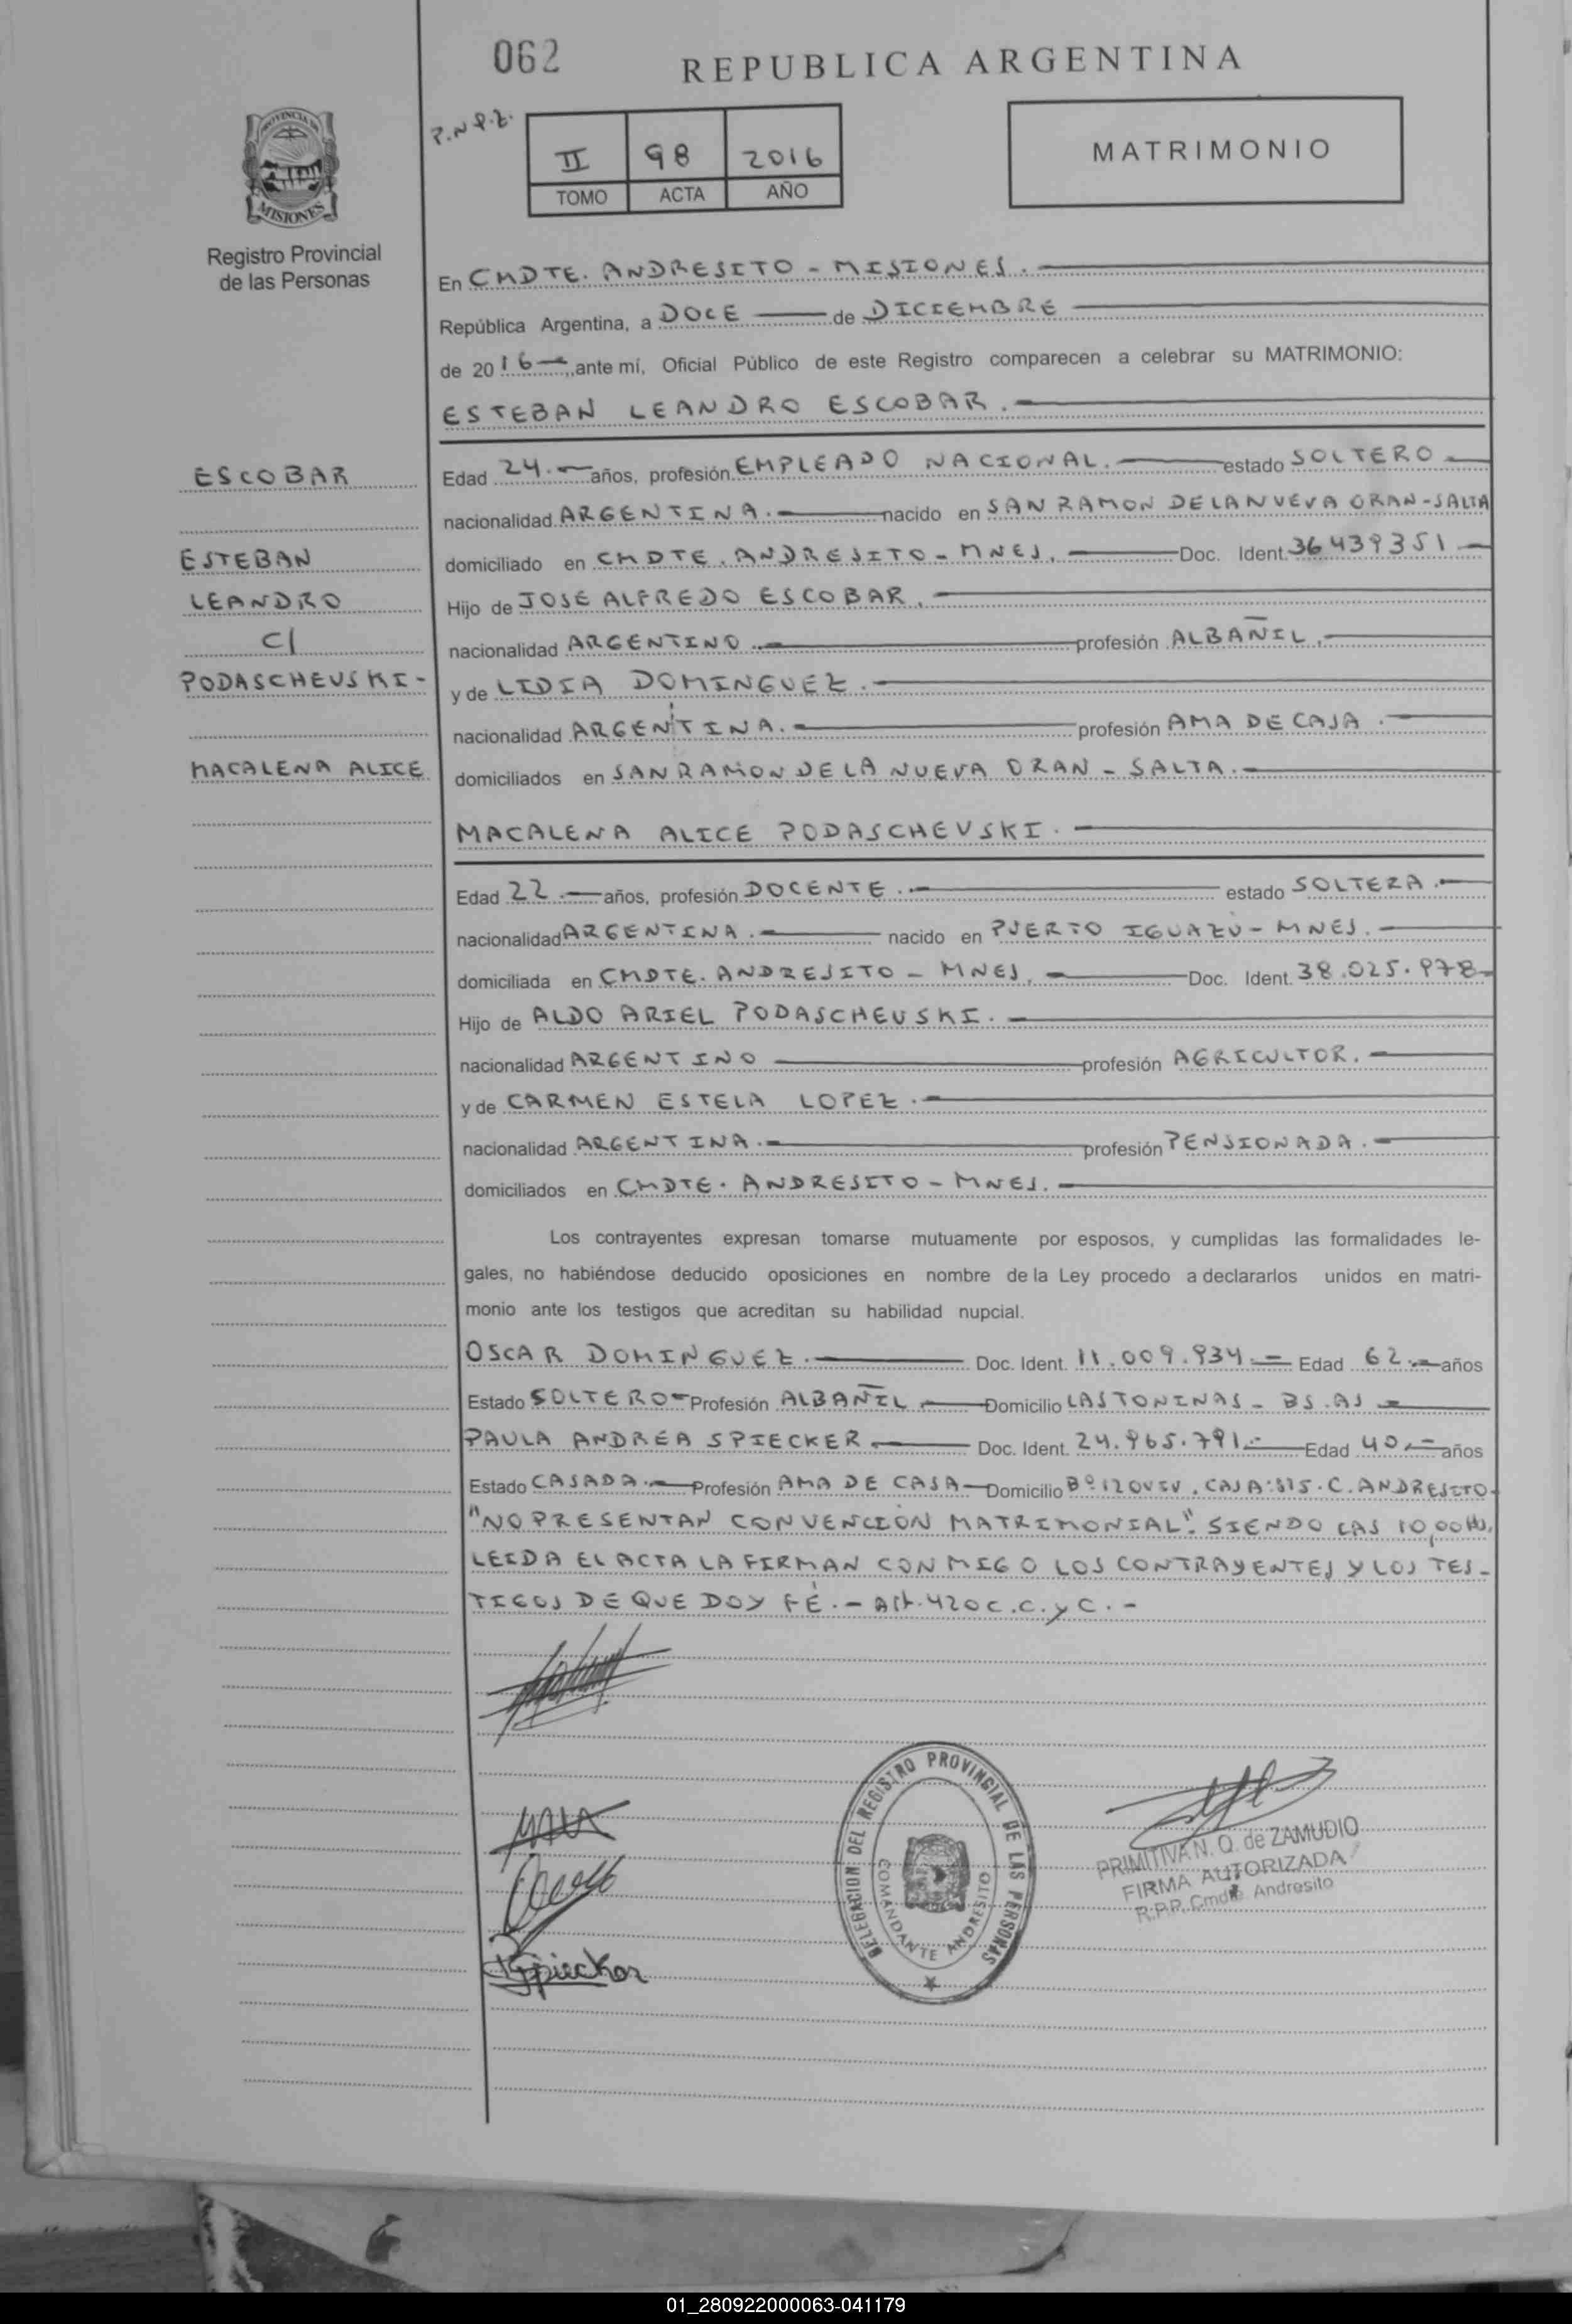 062
REPUBLICA ARGENTINA
P.N.P.Z.
II 98 2016
TOMO ACTA AÑO
MATRIMONIO
PROVINCIA DE
MISIONES
Registro Provincial
de las Personas
En CMDTE. ANDRESITO - MISIONES.
República Argentina, a DOCE de DICIEMBRE
de 2016 ante mí, Oficial Público de este Registro comparecen a celebrar su MATRIMONIO:
ESTEBAN LEANDRO ESCOBAR.
ESCOBAR
ESTEBAN
LEANDRO
C/
PODASCHEVSKI-
MACALENA ALICE
Edad 24.- años, profesión EMPLEADO NACIONAL. estado SOLTERO
nacionalidad ARGENTINA. nacido en SAN RAMON DE LA NUEVA ORAN-SALTA
domiciliado en CMDTE. ANDRESITO - MNES. Doc. Ident. 36439351
Hijo de JOSE ALFREDO ESCOBAR.
nacionalidad ARGENTINO profesión ALBAÑIL.
y de LIDIA DOMINGUEZ.
nacionalidad ARGENTINA. profesión AMA DE CASA.
domiciliados en SAN RAMON DE LA NUEVA ORAN - SALTA.
MACALENA ALICE PODASCHEVSKI.
Edad 22.- años, profesión DOCENTE. estado SOLTERA.
nacionalidad ARGENTINA. nacido en PUERTO IGUAZU - MNES.
domiciliada en CMDTE. ANDRESITO - MNES. Doc. Ident. 38.025.978-
Hijo de ALDO ARIEL PODASCHEVSKI.
nacionalidad ARGENTINO profesión AGRICULTOR.
y de CARMEN ESTELA LOPEZ.
nacionalidad ARGENTINA. profesión PENSIONADA.
domiciliados en CMDTE. ANDRESITO - MNES.
Los contrayentes expresan tomarse mutuamente por esposos, y cumplidas las formalidades le-
gales, no habiéndose deducido oposiciones en nombre de la Ley procedo a declararlos unidos en matri-
monio ante los testigos que acreditan su habilidad nupcial.
OSCAR DOMINGUEZ. Doc. Ident. 11.009.934.- Edad 62.- años
Estado SOLTERO- Profesión ALBAÑIL Domicilio LAS TONINAS - BS.AS
PAULA ANDREA SPIECKER Doc. Ident. 24.965.791.- Edad 40.- años
Estado CASADA. Profesión AMA DE CASA Domicilio Bº 120 VIV. CASA: 115. C. ANDRESITO.
"NO PRESENTAN CONVENCIÓN MATRIMONIAL". SIENDO LAS 10,00 Hs.
LEIDA EL ACTA LA FIRMAN CONMIGO LOS CONTRAYENTES Y LOS TES-
TIGOS DE QUE DOY FÉ. - Art. 420 C.C. y C. -
Spiecker
DELEGACION DEL REGISTRO PROVINCIAL DE LAS PERSONAS
COMANDANTE ANDRESITO
PRIMITIVA N. Q. de ZAMUDIO
FIRMA AUTORIZADA
R.P.P. Cmdte. Andresito
01_280922000063-041179